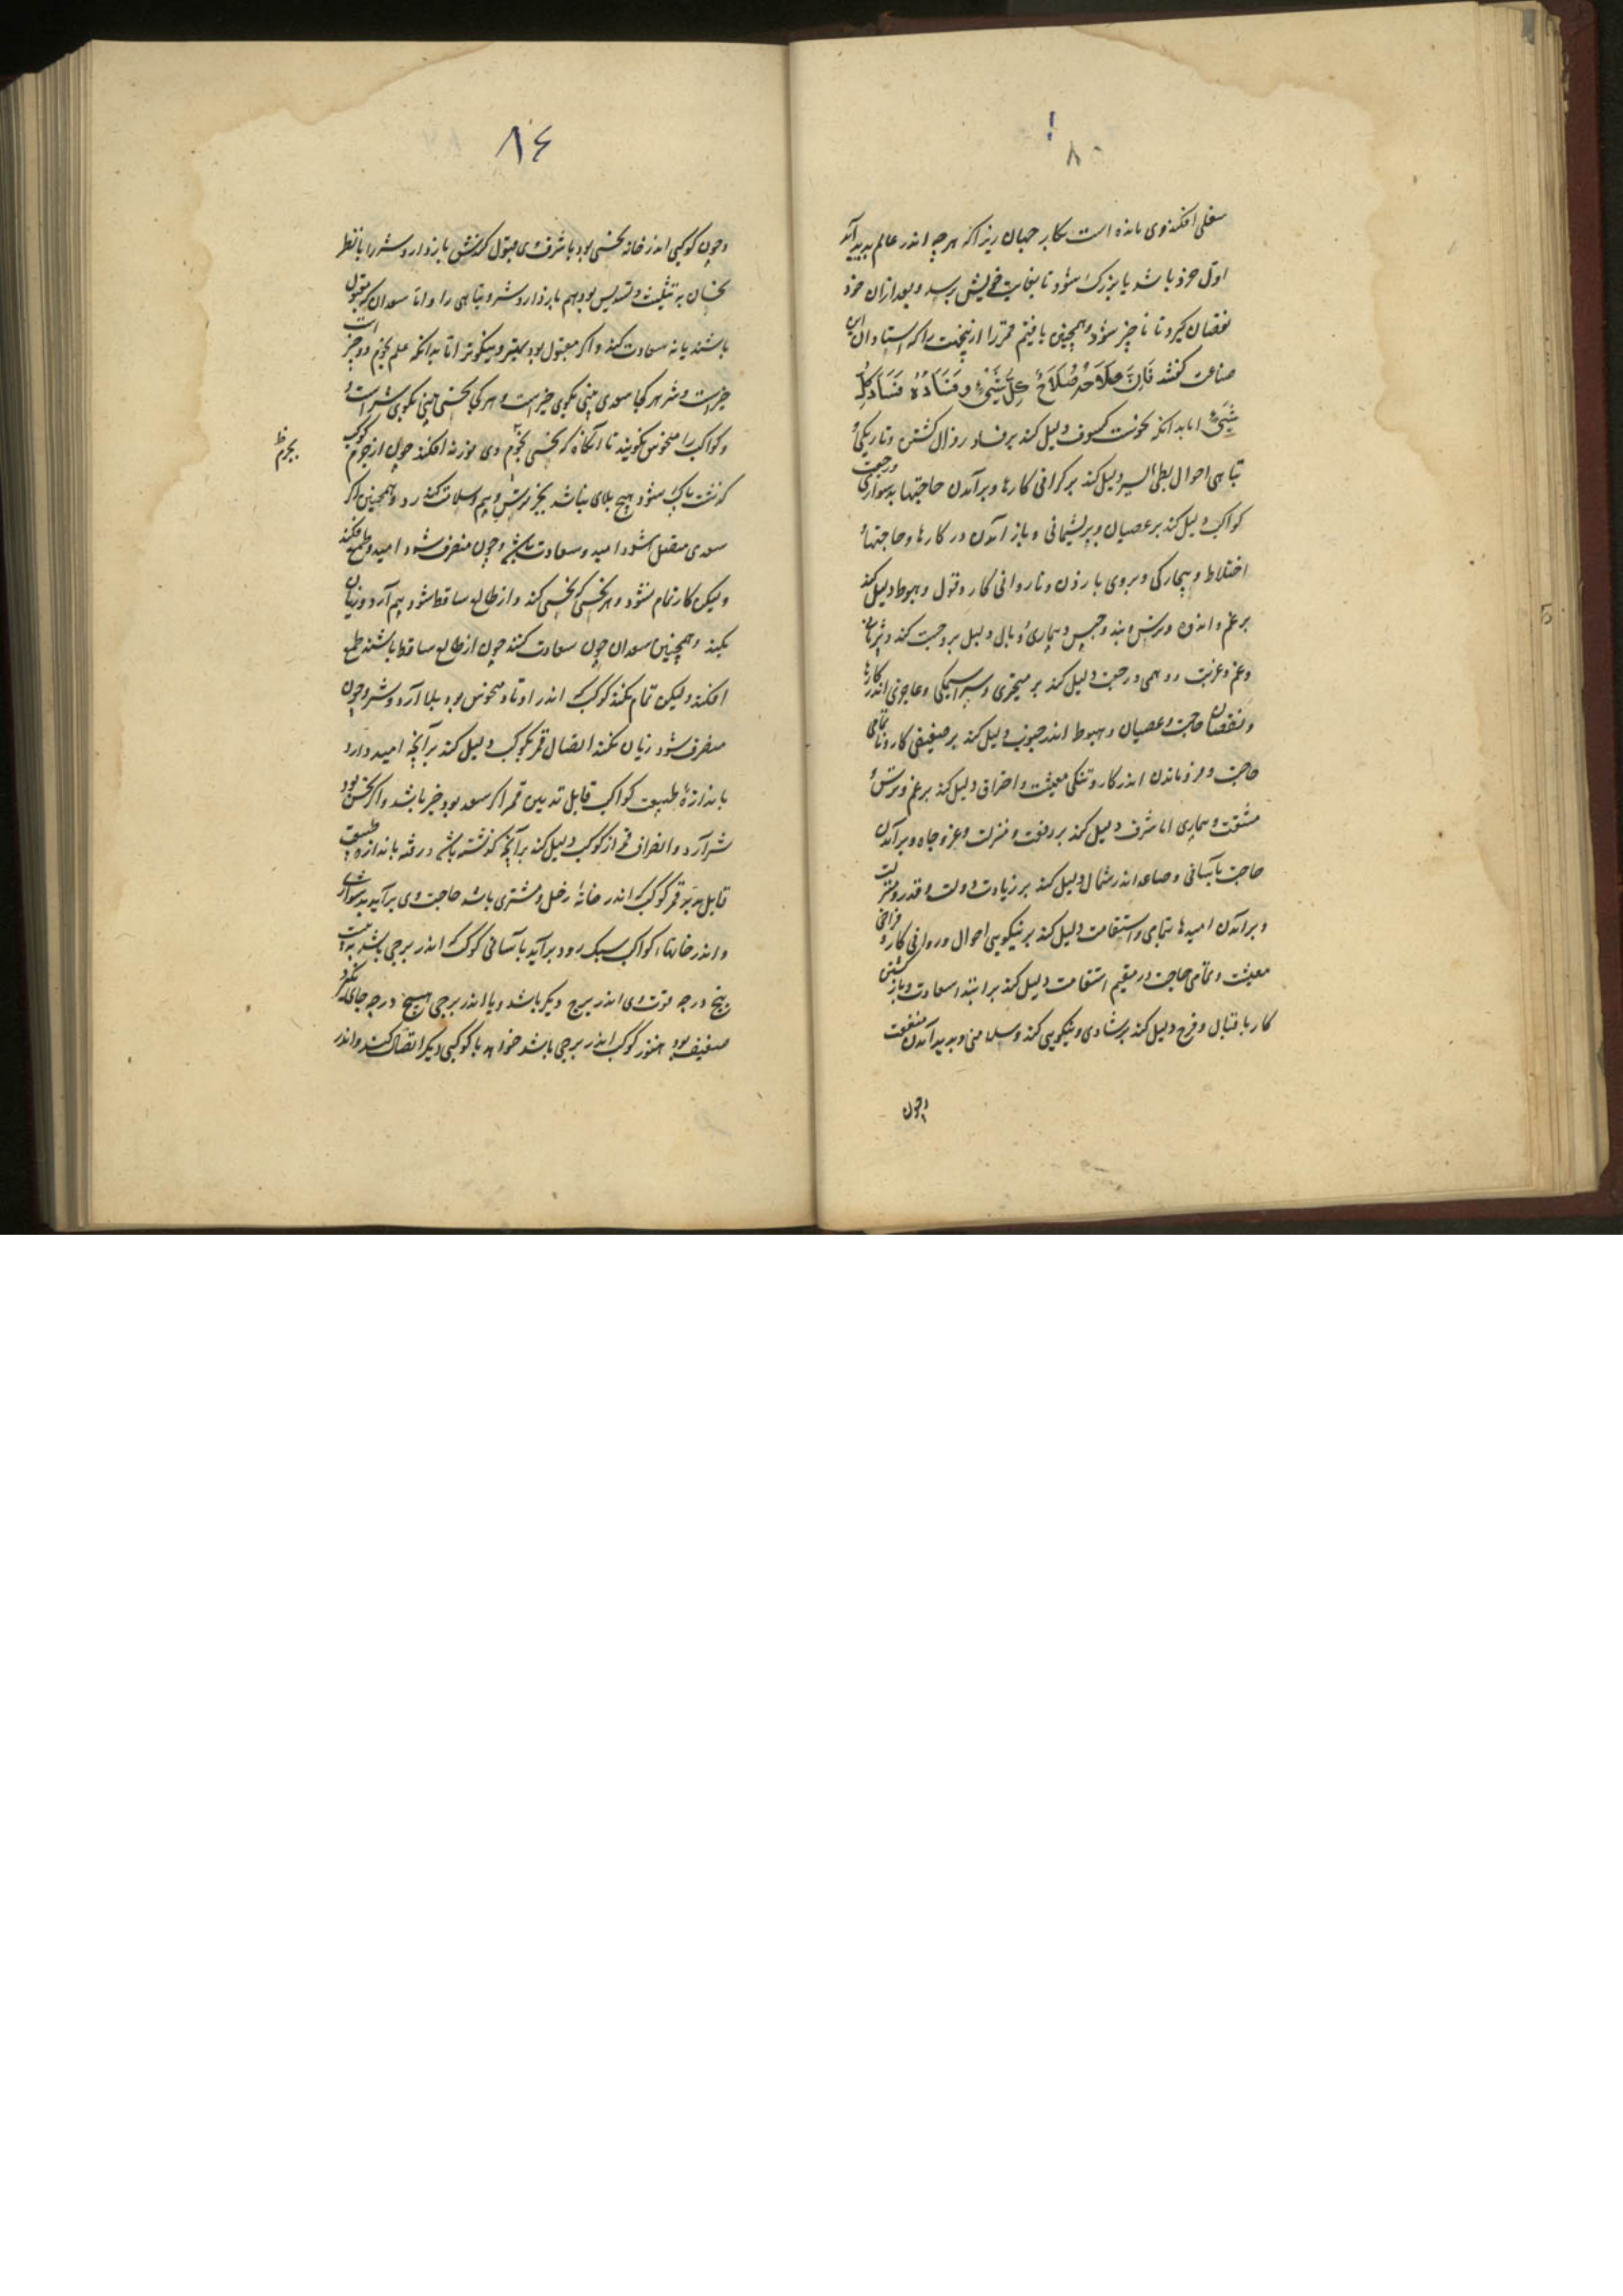 ۸۰
سفلی افکند وی مانده است بکار جهان زیرا که هرچه اندر عالم پدید آید
اول خرد باشد یا بزرگ شود تا بغایت خویش برسد و بعد ازان خرد
نقصان گیرد تا ناچیز شود و همچنین یافتیم قمر را ازینجهت را که استادان این
صناعت گفتند فَاِنَّ صَلَاحَهُ صَلَاحُ کُلِّ شَیْءٍ وَ فَسَادَهُ فَسَادُ کُلِّ
شَیْءٍ اما بدانکه نحوست کسوف دلیل کند بر فساد و زوال کشتن و تاریکی و
تباهی احوال بطئ السیر دلیل کند بر گرانی کارها و برآمدن حاجتها بدشواری و رجعت
کواکب دلیل کند بر عصیان و پریشیمانی و باز آمدن در کارها و حاجتها و
اختلاط و بیچارگی و بروی باز زدن و ناروانی کار و قول و هبوط دلیل کند
بر غم و اندوه و ترس و بند و حبس و بیماری و وبال دلیل بر وحشت کند و
وغم وغربت و رجعت دلیل کند بر متحیری و سراسیمگی و عاجزی اندر کارها
و نقصان حاجت و عصیان و هبوط اندر جنوب دلیل کند بر ضعیفی کار و ناتمامی
حاجت و فروماندن اندر کار و تنگی معیشت و احتراق دلیل کند بر غم و ترس و
مشقت و بیماری اما شرف دلیل کند بر رفعت و منزلت و عز و جاه و برآمدن
حاجت بآسانی و صاعد اندر شمال دلیل کند بر زیادت دولت و قدر و منزلت
و برآمدن امیدها بتمامی و استقامت دلیل کند بر نیکویی احوال و روانی کار و فراخی
معیشت و تمامی حاجت و مقیم استقامت دلیل کند بر ابتداء سعادت و باز گشتن
کار باقبال و فرح دلیل کند بر شادی و نیکویی کند و سلامتی و پدید آمدن منفعت
وچون
۸٤
وچون کوکبی اندر خانه نحسی بود یا شرف وی مقبول گزندش باز دارد و شر را با نظر
نحسان به تثلیث و تسدیس بود هم باز دارد شر و تباهی را و اما سعدان اگر مقبول
باشند یا نه سعادت کنند و اگر مقبول بود بهتر و نیکوتر اما بدانکه علم نجوم دو چیز است
خیر است و شر هر کجا سعدی بینی بگوی خیر است و هر کجا نحسی بینی بگوی شر است و
و کواکب را منحوس نگویند تا آنگاه که نحسی بجرم وی نور نه افکند چون از جرم کوکب
گذشت پاک شود هیچ بلای نباشد بجز ترس و بیم و سلامت کند رد و همچنین اگر
بجرم
سعدی متصل شود امید و سعادت باشد و چون منصرف شود امید و طمع افکند
ولیکن کار تمام نشود و هر نحسی که نحسی کند و از طالع ساقط شود بیم آرد و زیان
نکند و همچنین سعدان چون سعادت کنند چون از طالع ساقط باشند طمع
افکند ولیکن تمام نکند کوکب که اندر اوتاد منحوس بود بلا آرد و شر و چون
منصرف شود زیان نکند اتصال قمر بکوکب دلیل کند بر آنچه امید دارد
باندازهٔ طبیعت کواکب قابل تدبیر قمر اگر سعد بود خیر باشد و اگر نحس بود
شر آرد و انصراف قمر از کوکب دلیل کند بر آنچه گذشته باشد و رفته باندازه طبیعت
قابل تدبیر قمر کوکب که اندر خانهٔ زحل و مشتری باشد حاجت وی برآید بدشواری
و اندر خانها کواکب سبک رود برآید بآسانی کوکب که اندر برجی باشد به بیست
پنج درجه قوت وی اندر برج دیگر باشد و یا اندر برجی هیچ درجه جای نگیرد
ضعیف بود هنوز کوکب اندر برجی باشد خواهد با کوکبی دیگر اتصال کند و اندر